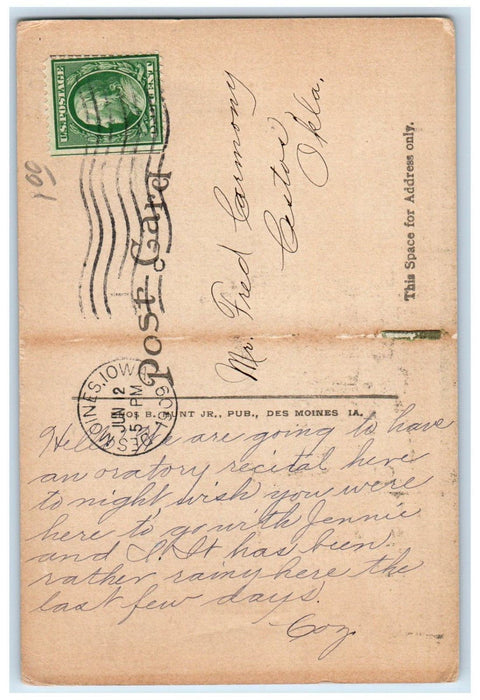 U.S. POSTAGE
ONE CENT
1 00
Post Card
Mr. Fred Carmony
Cestos
Okla.
This Space for Address only.
MOINES, IOWA
JUN 2
5 PM
1909
B. HUNT JR., PUB., DES MOINES IA.
Hello We are going to have
an oratory recital here
to night, wish you were
here to go with Jennie
and I. It has been
rather rainy here the
last few days.
Coz.